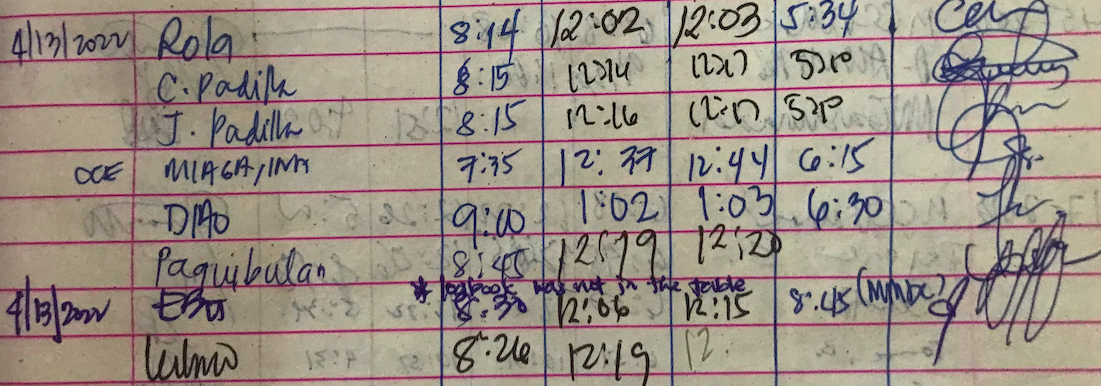 4/13/2022 Rola 8:14 12:02 12:03 5:34
C. Padilla 8:15 12:14 12:17 5:10
J. Padilla 8:15 12:16 12:17 5:10
OCE MIAGA, INA 7:35 12:37 12:44 6:15
DIAO 9:00 1:02 1:03 6:30
Paquibulan 8:45 12:19 12:20
* logbook was not in the table
4/13/2022 8:30 12:06 12:15 8:45
8:26 12:19 12: